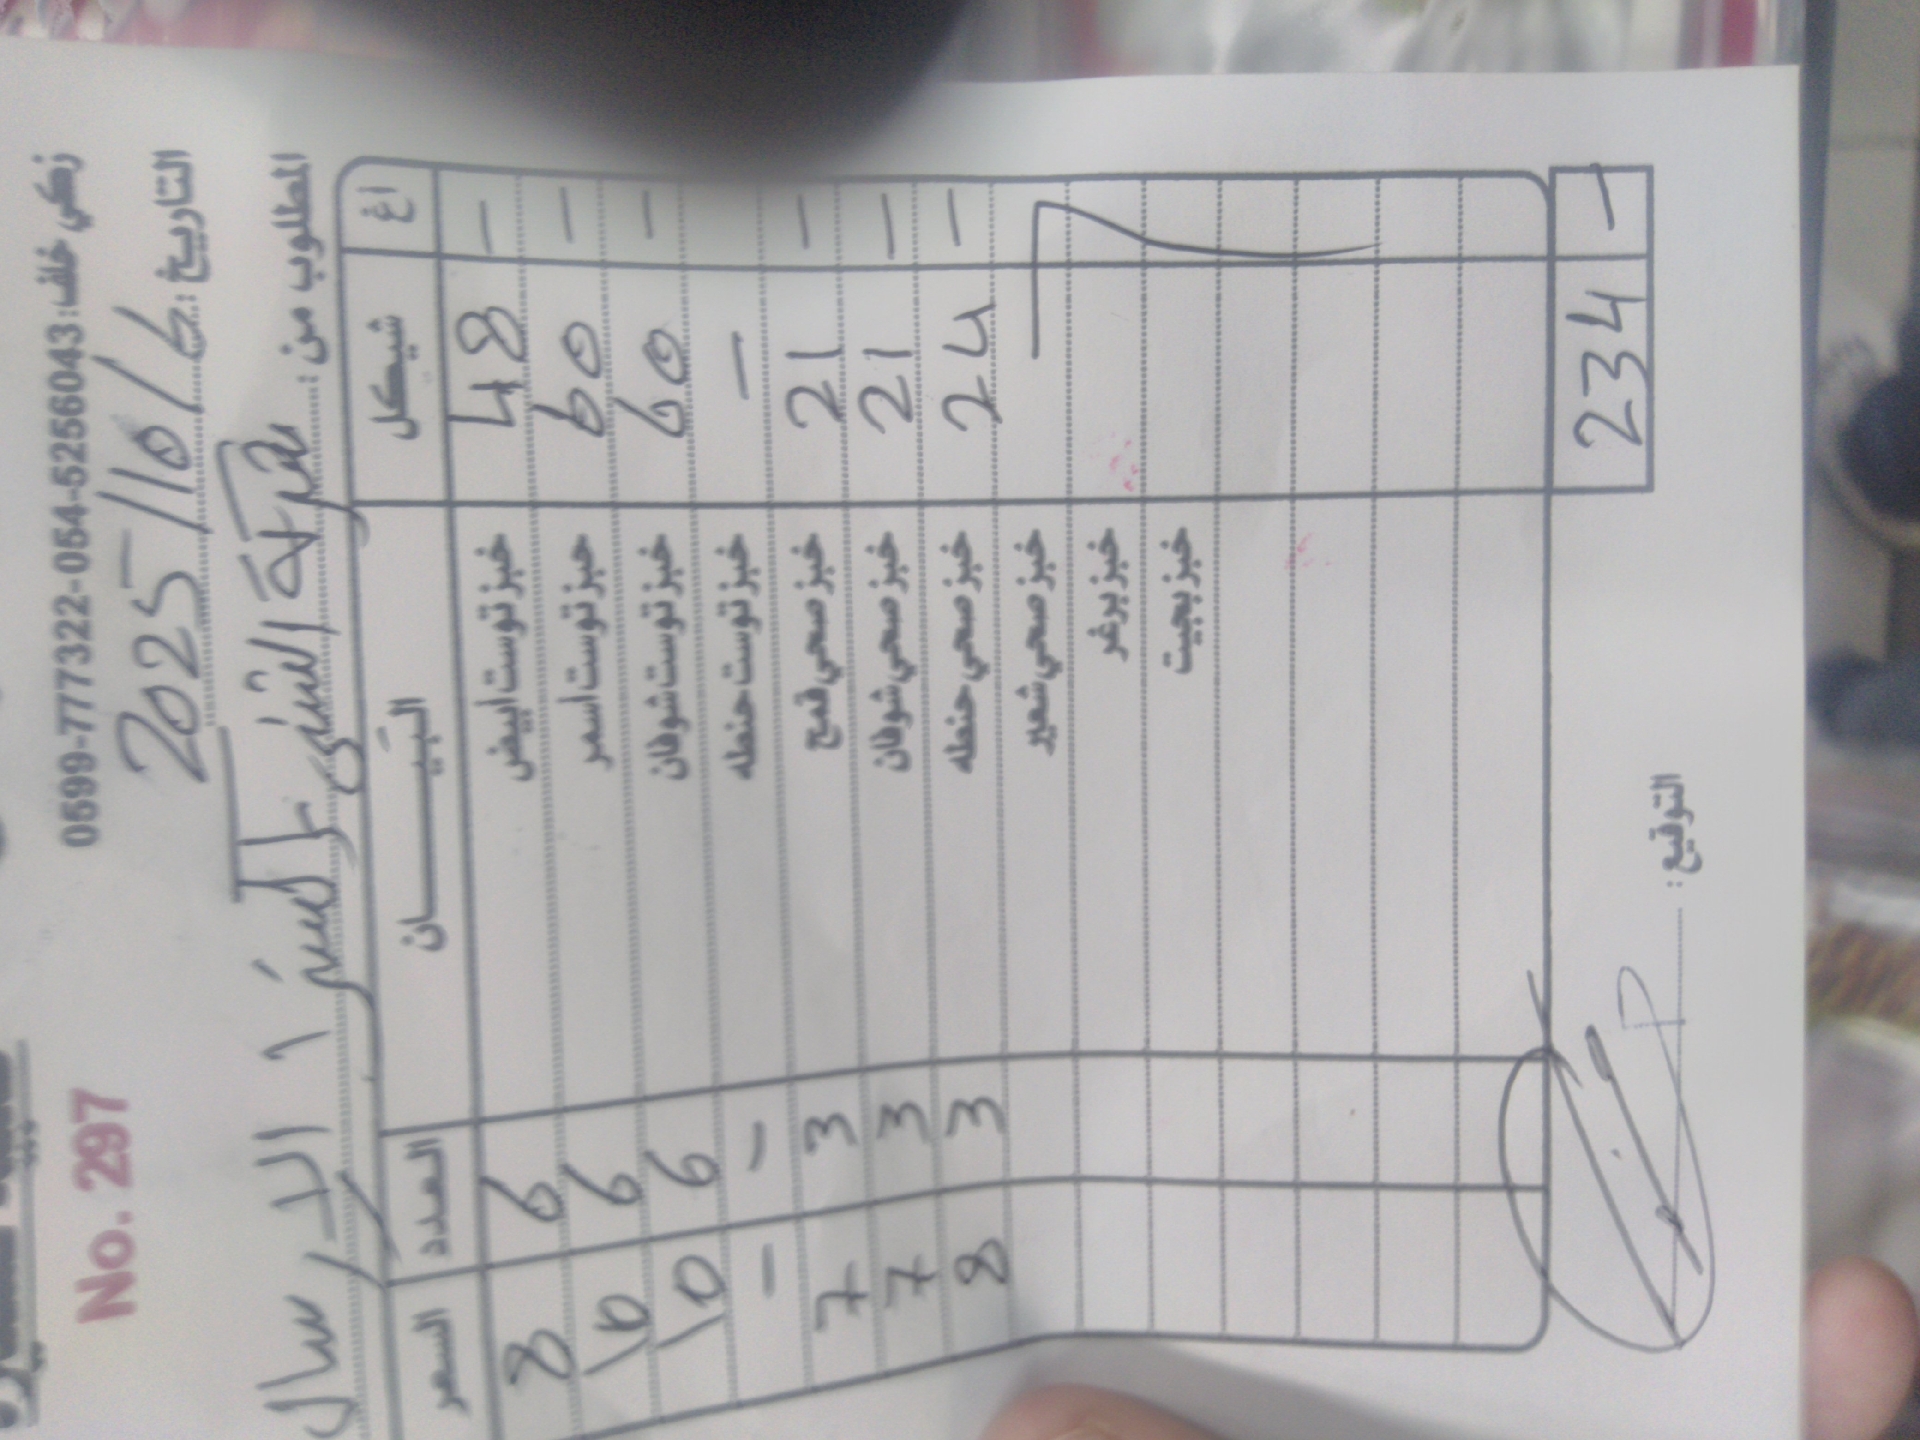 زكي خلف: 0599-777322-054-5256043
No. 297
التاريخ: 6/10/2025
المطلوب من: شركة الشني
السعر العدد البيـــــان شيكل اغ
8 6 خبز توست ابيض 48 -
10 6 خبز توست اسمر 60 -
10 6 خبز توست شوفان 60 -
- - خبز توست حنطه -
7 3 خبز صحي قمح 21 -
7 3 خبز صحي شوفان 21 -
8 3 خبز صحي حنطه 24 -
خبز صحي شعير
خبز برغر
خبز بجيت
234 -
التوقيع: